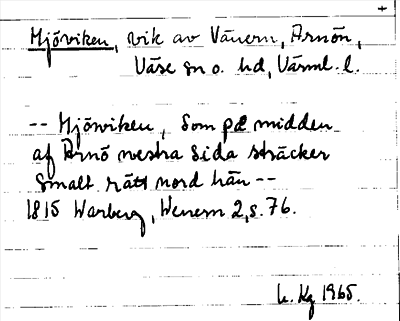 +
Mjöviken, vik av Vänern, Arnön,
Väse sn o. hd, Värml. l.
-- Mjöwiken, som på midden
af Arnö westra Sida sträcker
smalt rätt nord hän --
1815 Warberg, Wenern 2, s. 76.
L. Kg 1965.